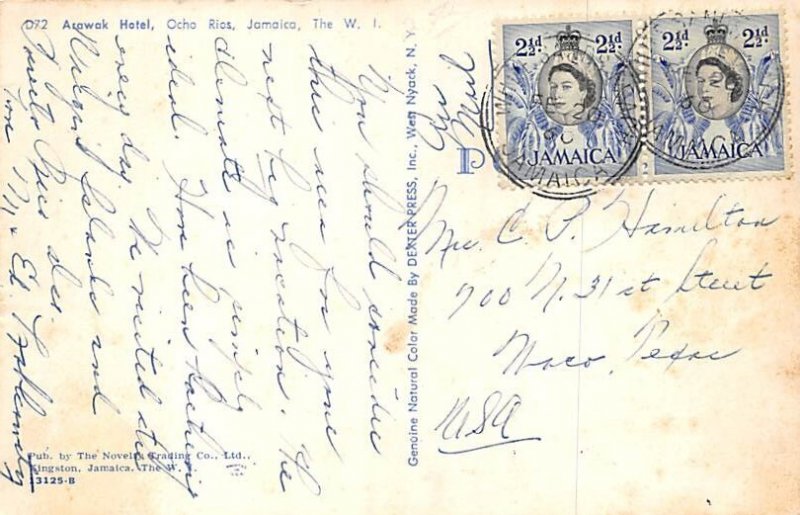 D72 Arawak Hotel, Ocho Rios, Jamaica, The W. I.
You should consider
this area for your
next big vacation. The
climate is simply
ideal. Have been bathing
every day. We visited the
Virgin Islands and
Puerto Rico also.
& Ed
Pub. by The Novelty Trading Co., Ltd.,
Kingston, Jamaica, The W. I.
13125-B
Genuine Natural Color Made By DEXTER PRESS, Inc., West Nyack, N. Y.
Air
Mail
P
2½d. 2½d.
JAMAICA
2½d. 2½d.
JAMAICA
20
JAMAICA
JAMAICA
C. P. Hamilton
700 N. 31st Street
Waco, Texas
USA